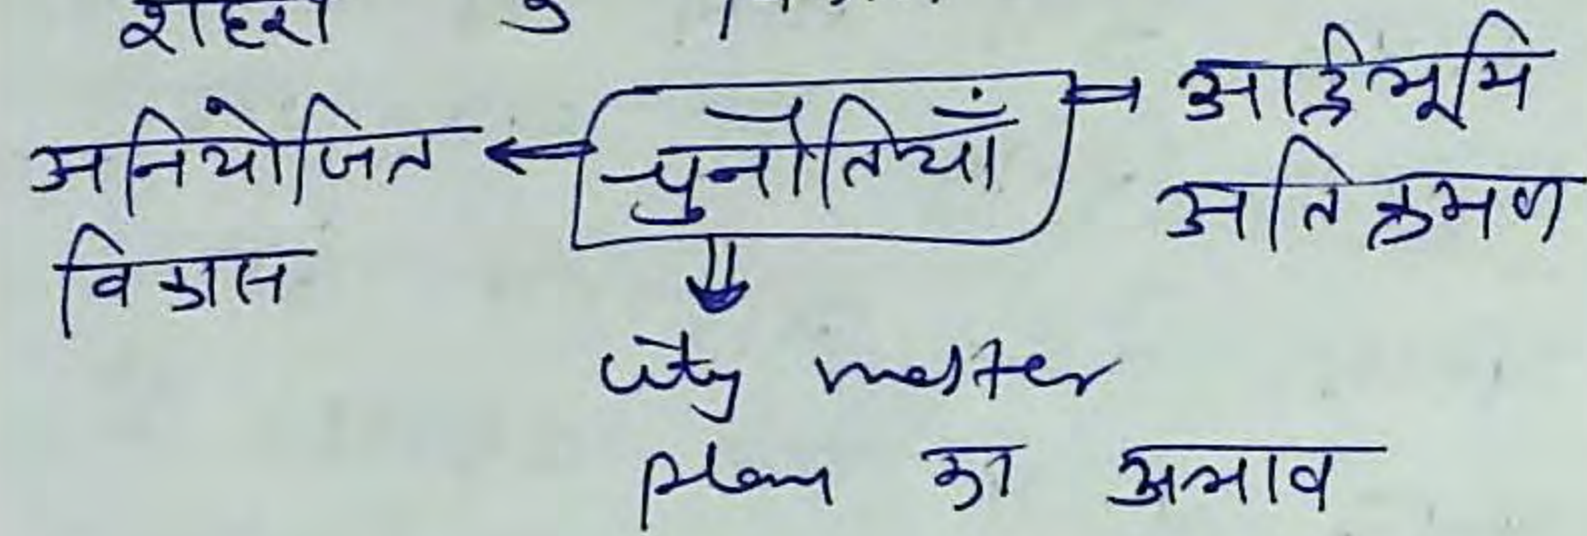 शहरी
अनियोजित ← चुनौतियाँ → आर्द्रभूमि
विकास अतिक्रमण
city master
plan का अभाव